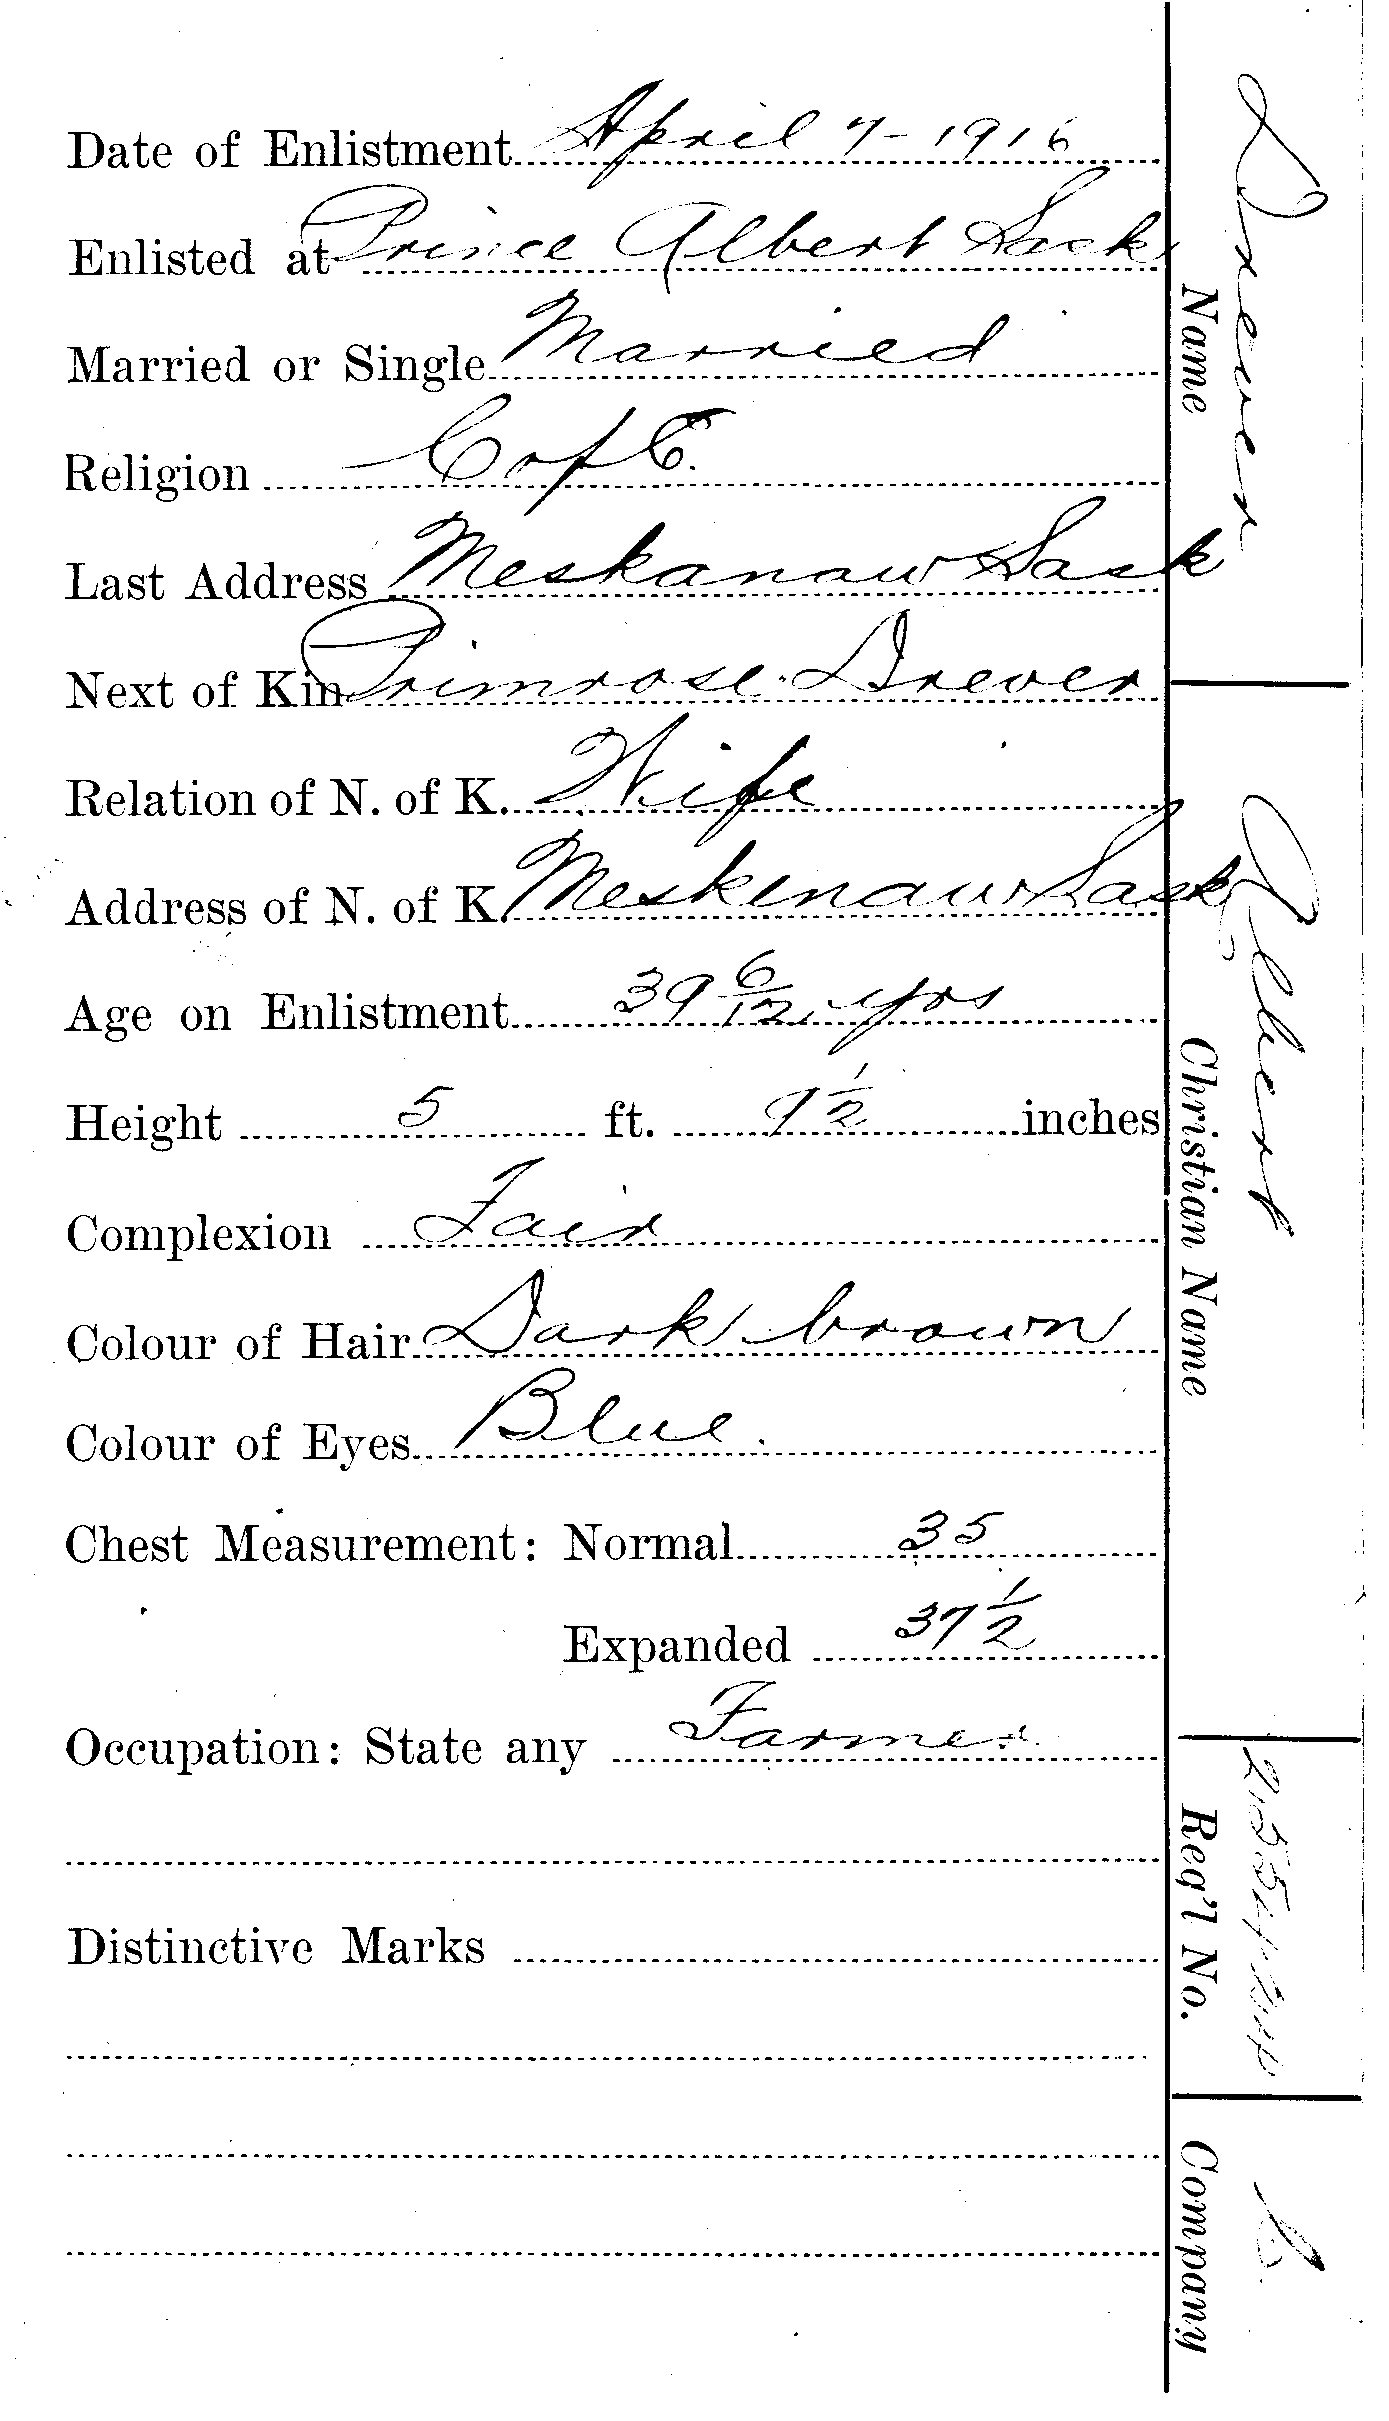 Date of Enlistment April 7 - 1916
Enlisted at Prince Albert Sask
Married or Single Married
Religion C of E.
Last Address Meskanaw Sask
Next of Kin Primrose Drever
Relation of N. of K. Wife
Address of N. of K. Meskenaw Sask
Age on Enlistment 39 6/12 yrs
Height 5 ft. 9 1/2 inches
Complexion Fair
Colour of Hair Dark brown
Colour of Eyes Blue.
Chest Measurement: Normal 35
Expanded 37 1/2
Occupation: State any Farmer
Distinctive Marks
Drever
Name
Albert
Christian Name
Reg'l No.
Company